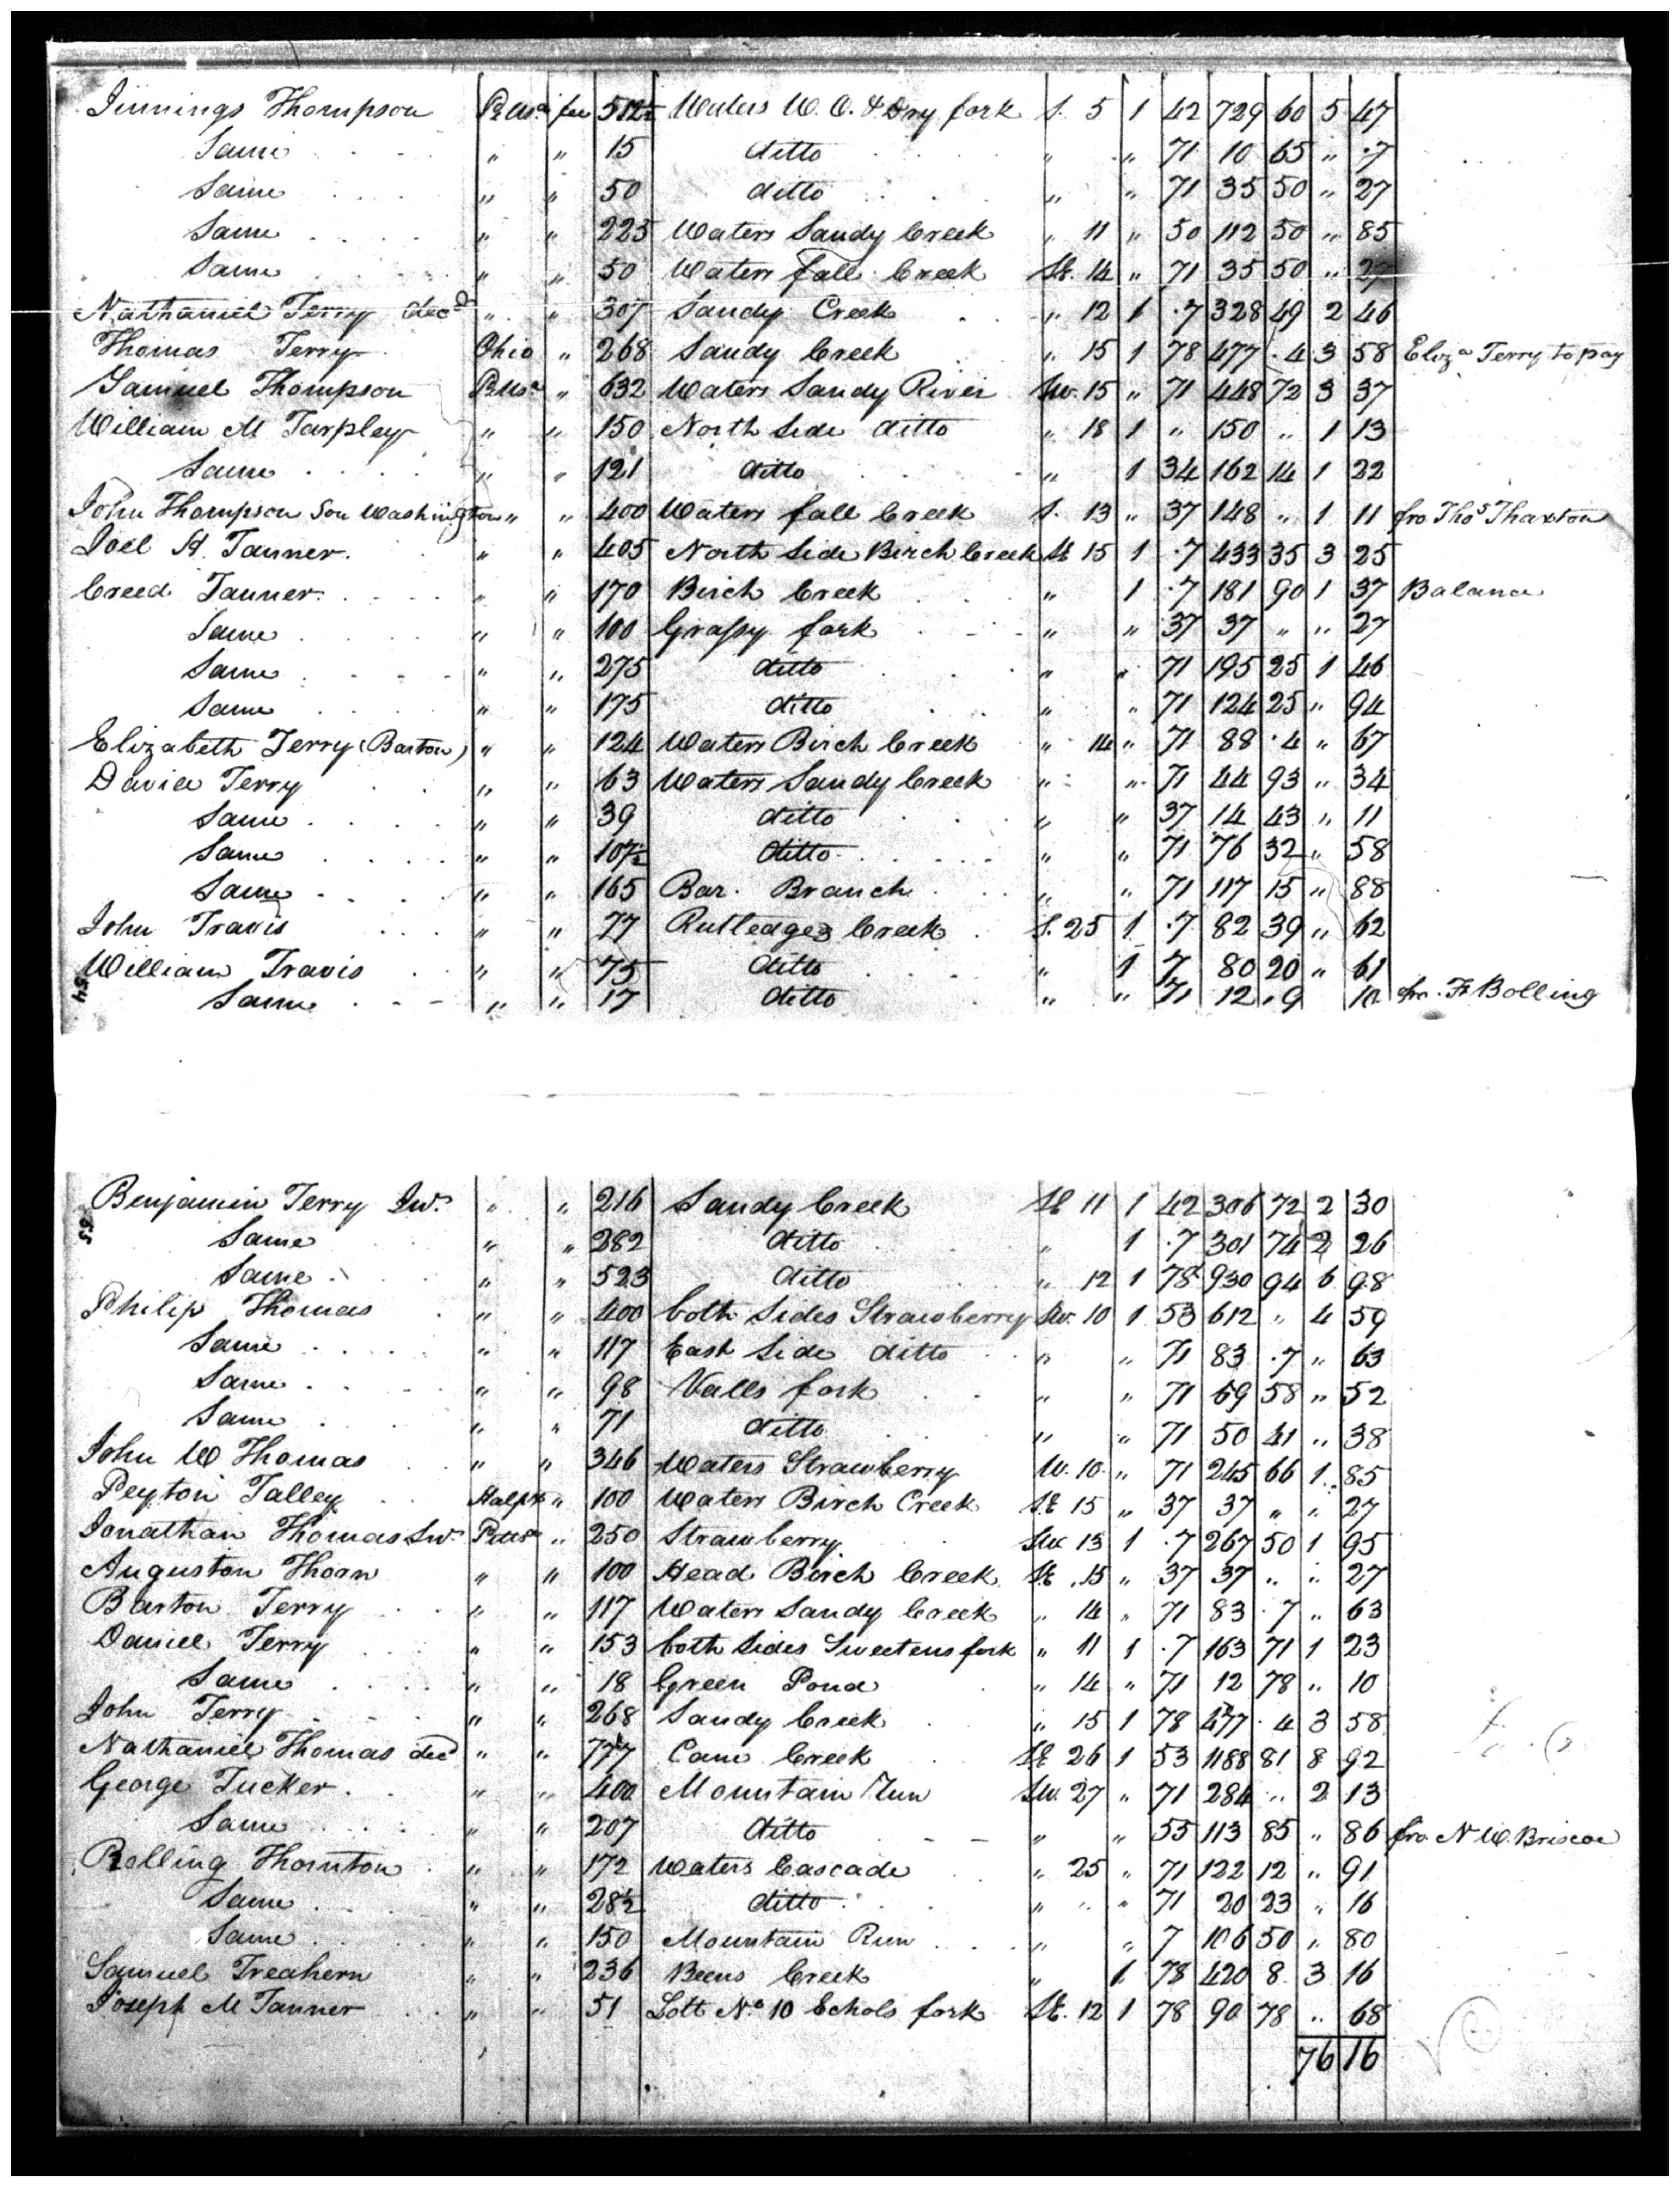 Jinnings Thompson Pittsa fee 512½ Waters W. O. & Dry fork S. 5 1 42 729 60 5 47
Same " " 15 ditto " " 71 10 65 " .7
Same " " 50 ditto " " 71 35 50 " 27
Same " " 225 Waters Sandy Creek " 11 " 50 112 50 " 85
Same " " 50 Waters fall Creek SE. 14 " 71 35 50 " 27
Nathaniel Terry decd " " 307 Sandy Creek " 12 1 .7 328 49 2 46
Thomas Terry Ohio " 268 Sandy Creek " 15 1 78 477 .4 3 58 Eliza Terry to pay
Samuel Thompson Pittsa " 632 Waters Sandy River SW. 15 " 71 448 72 3 37
William M Tarpley " " 150 North Side ditto " 18 1 " 150 " 1 13
Same " " 121 ditto " 1 34 162 14 1 22
John Thompson Son Washington " " 400 Waters fall Creek S. 13 " 37 148 " 1 11 fro Thos Thaxton
Joel H. Tanner " " 405 North Side Birch Creek SE 15 1 .7 433 35 3 25
Creed Tanner " " 170 Birch Creek " 1 .7 181 90 1 37 Balance
Same " " 100 Grassy fork " " 37 37 " " 27
Same " " 275 ditto " " 71 195 25 1 46
Same " " 175 ditto " " 71 124 25 " 94
Elizabeth Terry (Barton) " " 124 Waters Birch Creek " 14 " 71 88 .4 " 67
David Terry " " 63 Waters Sandy Creek " " 71 44 93 " 34
Same " " 39 ditto " " 37 14 43 " 11
Same " " 107½ ditto " " 71 76 32 " 58
Same " " 165 Bar. Branch " " 71 117 15 " 88
John Travis " " 77 Rutledges Creek S. 25 1 .7 82 39 " 62
William Travis " " 75 ditto " 1 7 80 20 " 61
54 Same " " 17 ditto " " 71 12 .9 10 fro. Bolling
55 Benjamin Terry Jur. " " 216 Sandy Creek SE 11 1 42 306 72 2 30
Same " " 282 ditto " 1 .7 301 74 2 26
Same " " 523 ditto " 12 1 78 930 94 6 98
Philip Thomas " " 400 both Sides Strawberry SW. 10 1 53 612 " 4 59
Same " " 117 East Side ditto " " 71 83 .7 " 63
Same " " 98 Valls fork " " 71 69 58 " 52
Same " " 71 ditto " " 71 50 41 " 38
John W Thomas " " 346 Waters Strawberry W. 10 " 71 245 66 1 85
Peyton Talley Halifx " 100 Waters Birch Creek SE 15 " 37 37 " " 27
Jonathan Thomas Sr. Pittsa " 250 Strawberry SW 13 1 .7 267 50 1 95
Auguston Thorn " " 100 Head Birch Creek SE. 15 " 37 37 " " 27
Barton Terry " " 117 Waters Sandy Creek " 14 " 71 83 .7 " 63
Daniel Terry " " 153 both Sides Sweetens fork " 11 1 .7 163 71 1 23
Same " " 18 Green Pond " 14 " 71 12 78 " 10
John Terry " " 268 Sandy Creek " 15 1 78 477 .4 3 58
Nathaniel Thomas decd " " 777 Cane Creek SE 26 1 53 1188 81 8 92
George Tucker " " 400 Mountain Run SW. 27 " 71 284 " 2 13
Same " " 207 ditto " " 55 113 85 " 86 fro N W. Briscoe
Rolling Thornton " " 172 Waters Cascade " 25 " 71 122 12 " 91
Same " " 28½ ditto " " 71 20 23 " 16
Same " " 150 Mountain Run " " 7 106 50 " 80
Samuel Treahern " " 236 Beens Creek " 1 78 420 8 3 16
Joseph M Tanner " " 51 Lott No 10 Echols fork SE. 12 1 78 90 78 " 68
76 16